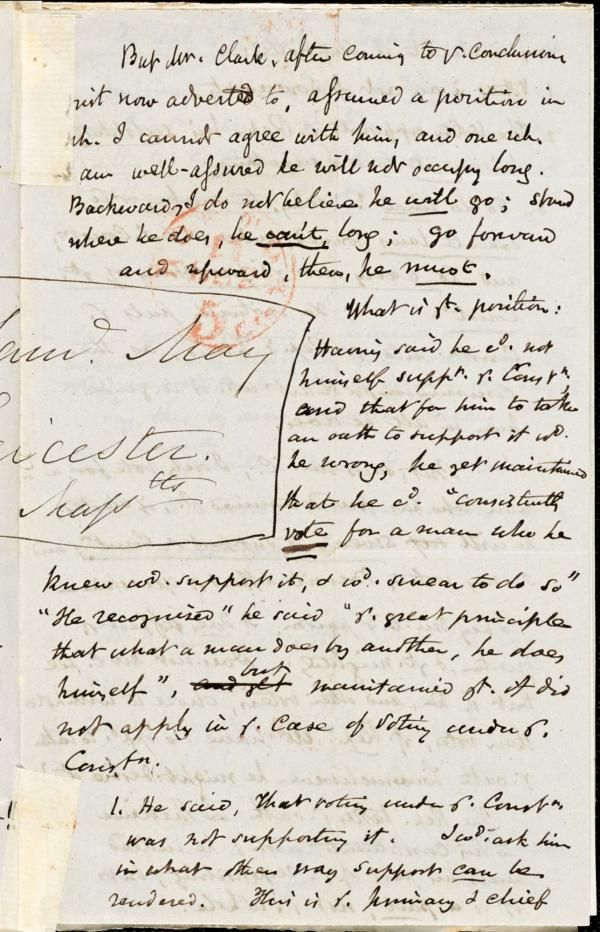 But Mr. Clark, after coming to ye. conclusion
just now adverted to, assumed a position in
wh. I cannot agree with him, and one wh.
I am well-assured he will not occupy long.
Backward, I do not believe he will go; stand
where he does, he can't, long; go forward
and upward, then, he must.
What is yt. position:
Having said he cd. not
himself suppt. ye. Constn.,
and that for him to take
an oath to support it wd.
be wrong, he yet maintained
that he cd. "consistently
vote for a man who he
knew wd. support it, & wd. swear to do so"
"He recognised" he said "ye. great principle
that what a man does by another, he does
himself", and yet but maintained yt. it did
not apply in ye. case of voting under ye.
Constn.
1. He said, that voting under ye. Constn.
was not supporting it. I wd. ask him
in what other way support can be
rendered. This is ye. primary & chief
Saml. May
Leicester.
Masstts
5